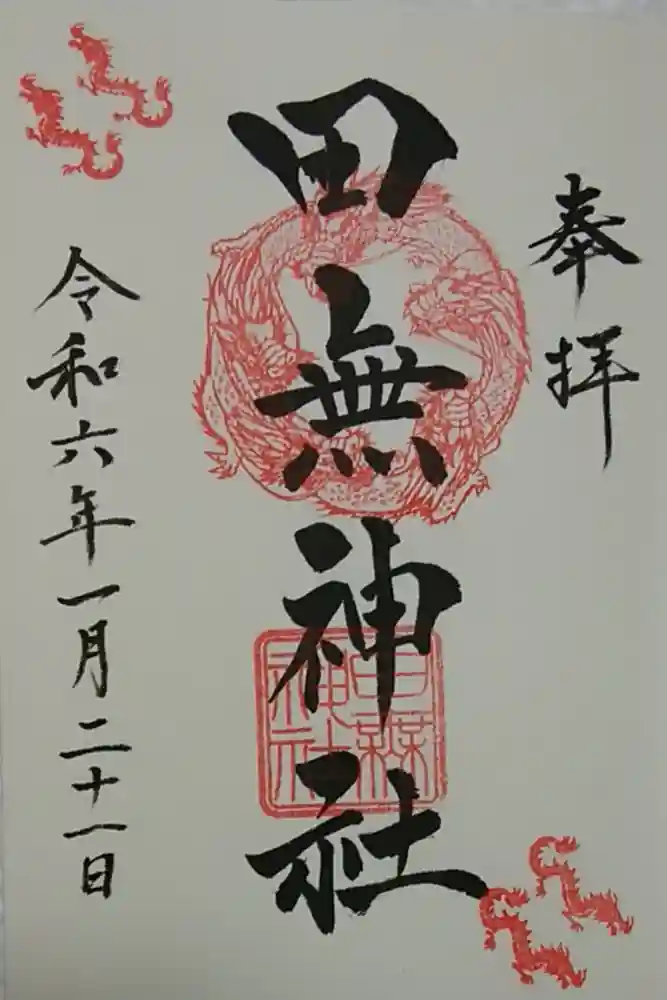 奉拝
田無神社
田無神社
令和六年一月二十一日